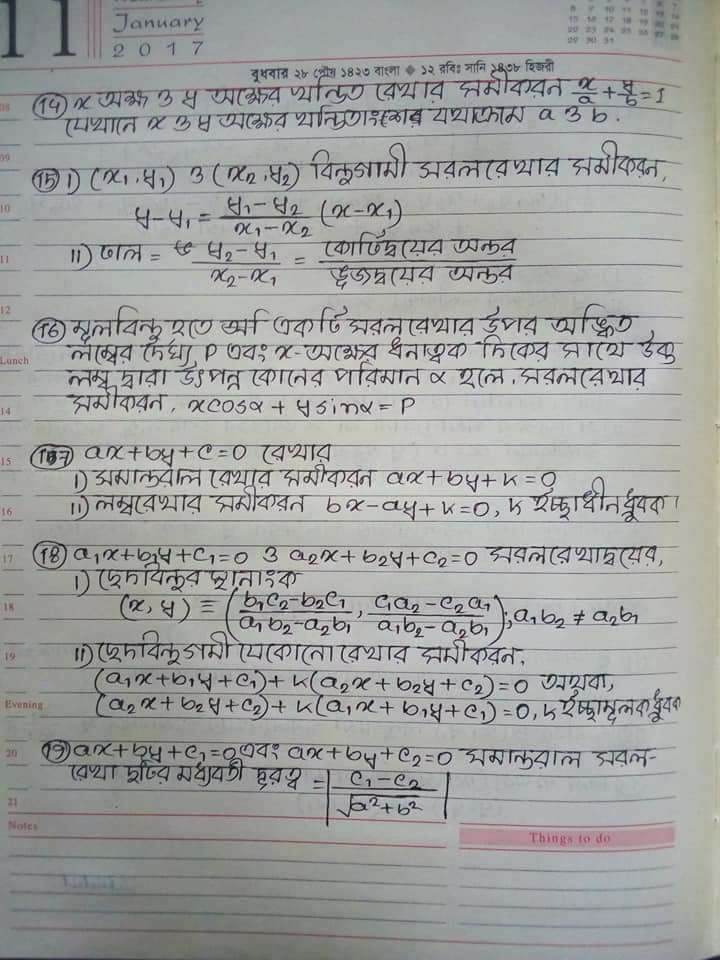 11
January
2017
বুধবার ২৮ পৌষ ১৪২৩ বাংলা ◆ ১২ রবিঃ সানি ১৪৩৮ হিজরী
08
(14) x অক্ষ ও y অক্ষের খন্ডিত রেখার সমীকরন x/a + y/b = 1
যেখানে x ও y অক্ষের খন্ডিতাংশের যথাক্রমে a ও b.
09
(15) i) (x₁, y₁) ও (x₂, y₂) বিন্দুগামী সরলরেখার সমীকরন,
10
y-y₁ = (y₁-y₂)/(x₁-x₂) (x-x₁)
11
ii) ঢাল = (y₂-y₁)/(x₂-x₁) = কোটিদ্বয়ের অন্তর/ভূজদ্বয়ের অন্তর
12
(16) মূলবিন্দু হতে একটি সরলরেখার উপর অঙ্কিত
Lunch
লম্বের দৈর্ঘ্য P এবং x-অক্ষের ধনাত্বক দিকের সাথে উক্ত
লম্ব দ্বারা উৎপন্ন কোনের পরিমান α হলে, সরলরেখার
14
সমীকরন, xcosα + ysinα = P
15
(17) ax+by+c=0 রেখার
i) সমান্তরাল রেখার সমীকরন ax+by+k=0
16
ii) লম্বরেখার সমীকরন bx-ay+k=0, k ইচ্ছাধীন ধ্রুবক।
17
(18) a₁x+b₁y+c₁=0 ও a₂x+b₂y+c₂=0 সরলরেখাদ্বয়ের,
i) ছেদবিন্দুর স্থানাংক
18
(x, y) ≡ ((b₁c₂-b₂c₁)/(a₁b₂-a₂b₁), (c₁a₂-c₂a₁)/(a₁b₂-a₂b₁)); a₁b₂ ≠ a₂b₁
19
ii) ছেদবিন্দুগামী যেকোনো রেখার সমীকরন,
(a₁x+b₁y+c₁)+k(a₂x+b₂y+c₂)=0 অথবা,
Evening
(a₂x+b₂y+c₂)+k(a₁x+b₁y+c₁)=0, k ইচ্ছামূলক ধ্রুবক
20
(19) ax+by+c₁=0 এবং ax+by+c₂=0 সমান্তরাল সরল-
রেখা দুটির মধ্যবর্তী দূরত্ব = |(c₁-c₂)/√(a²+b²)|
21
Notes
Things to do